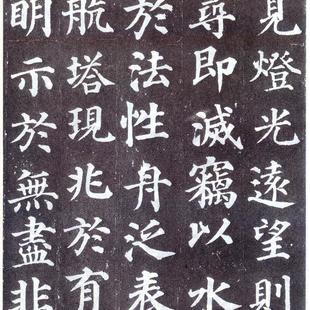 見燈光遠望則
尋即滅竊以水
於法性舟泛表
航塔現兆於有
明示於無盡非